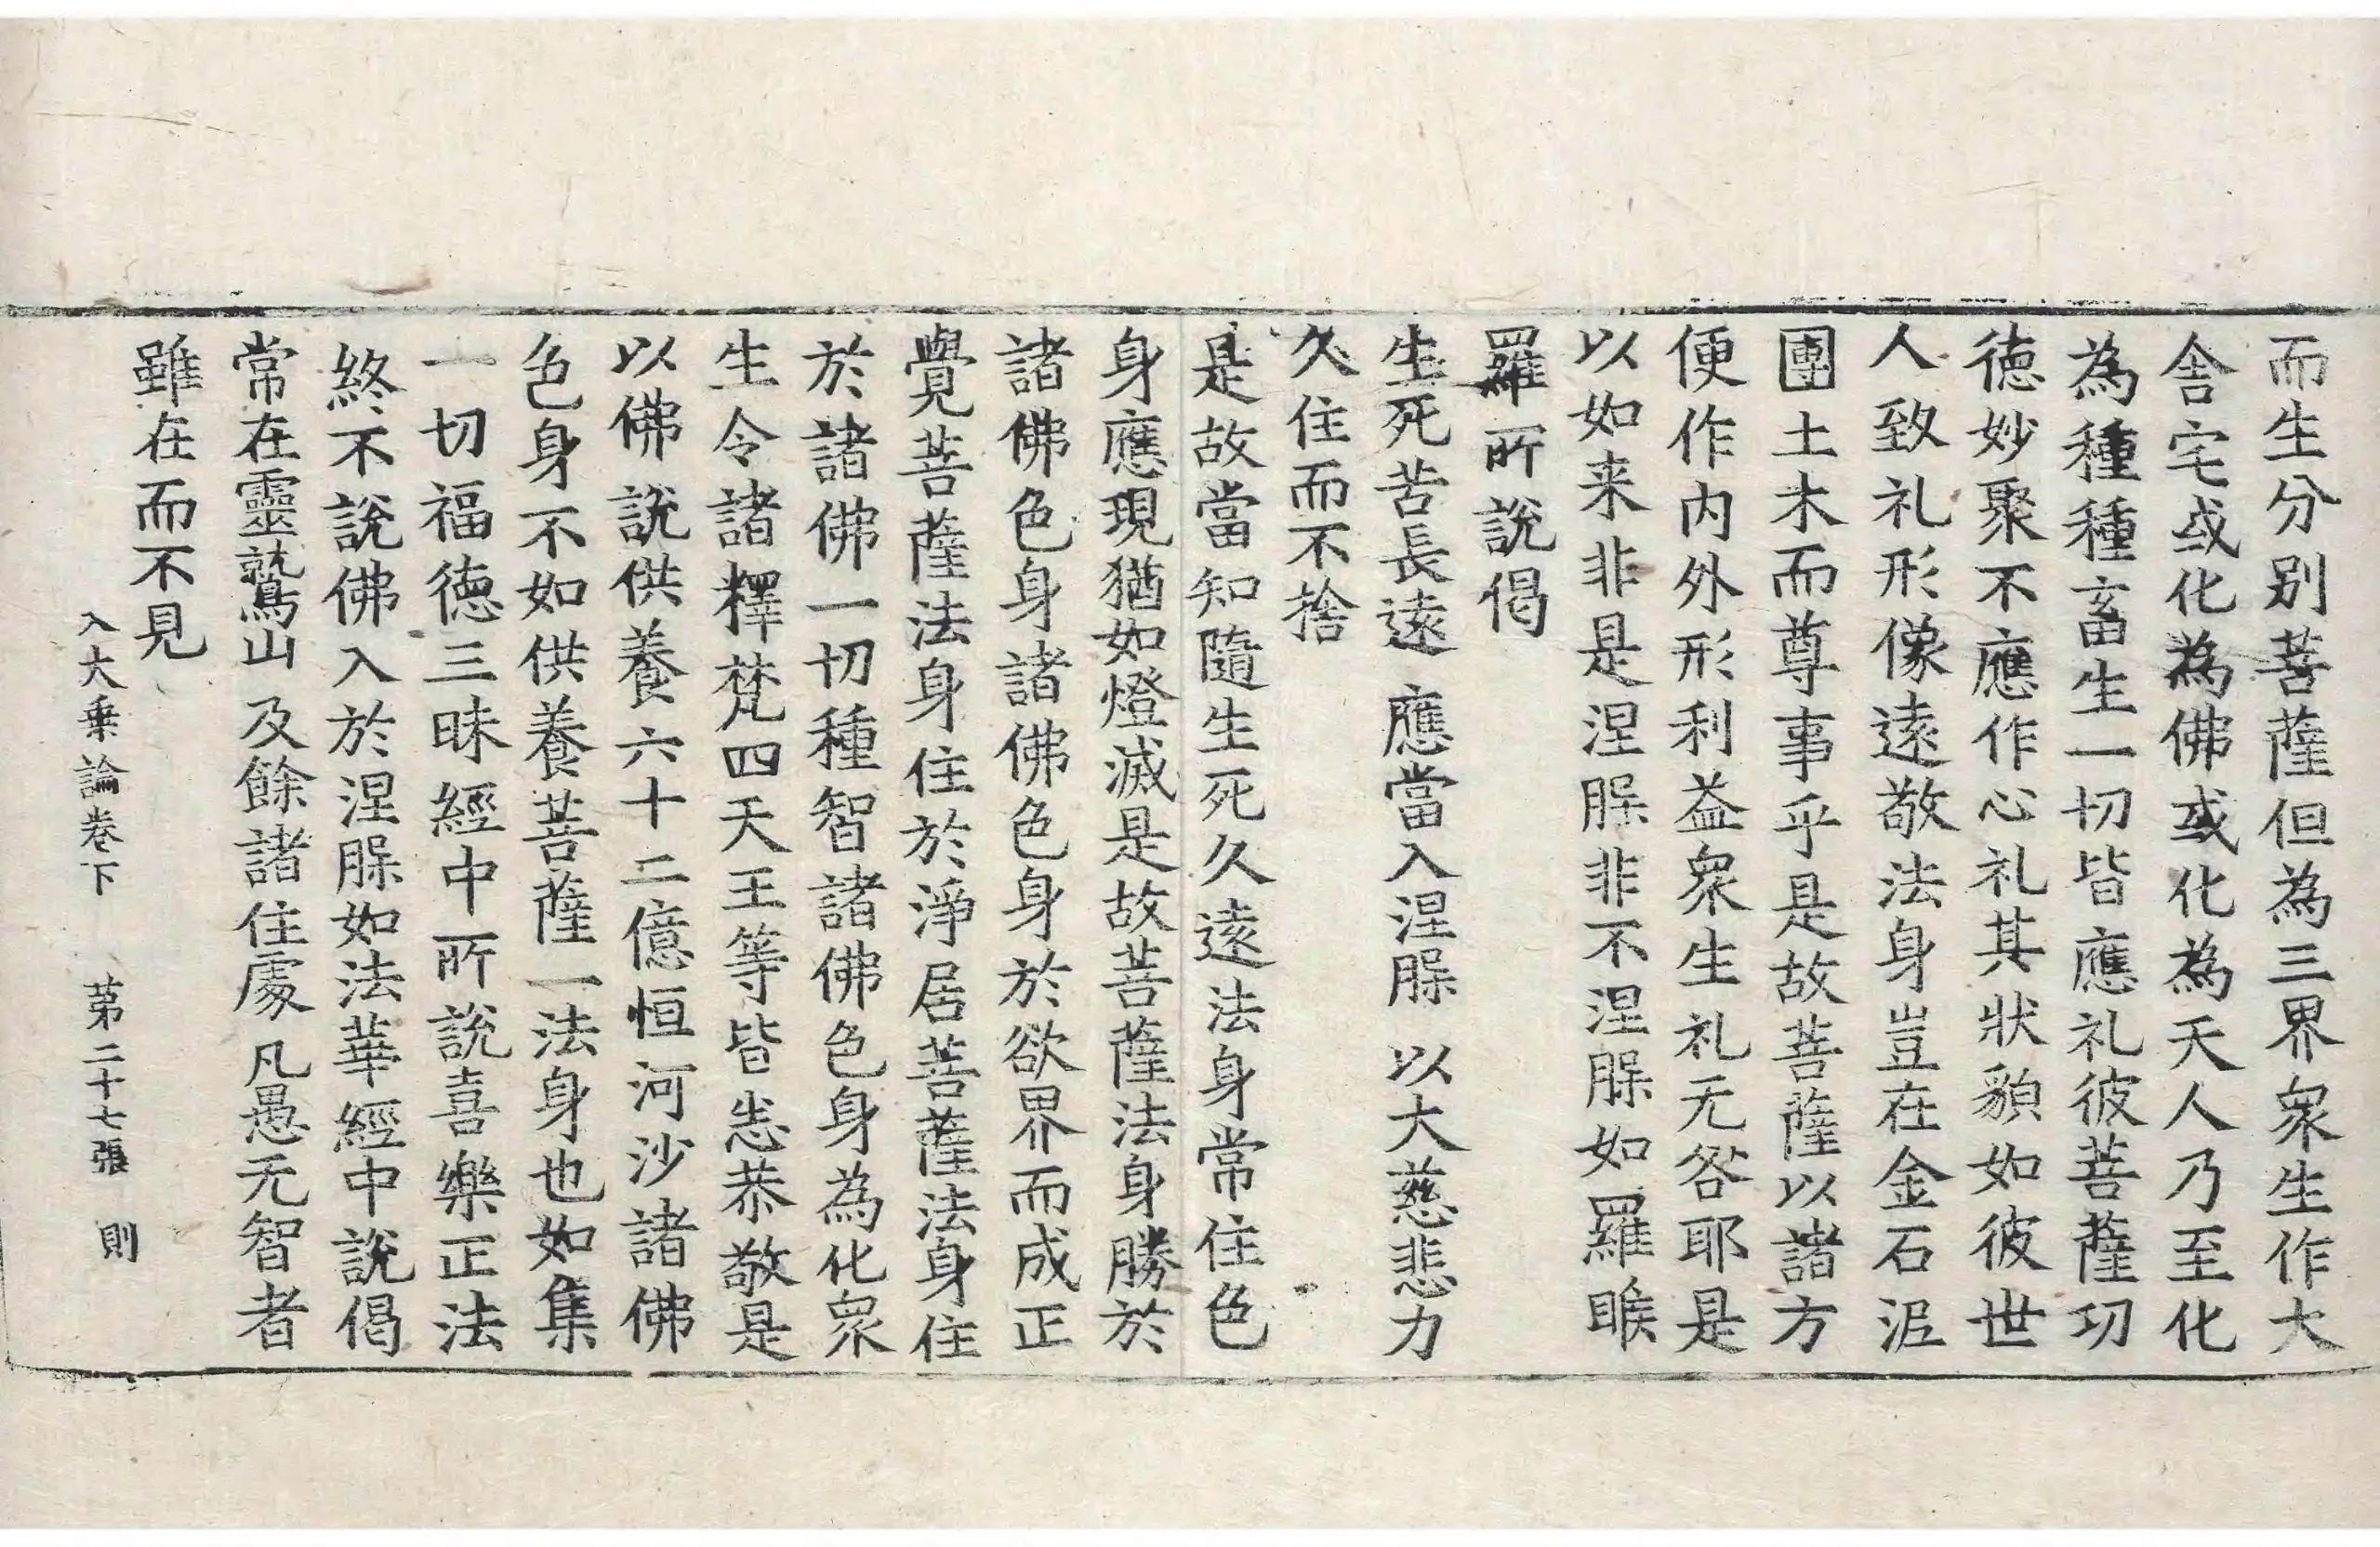 而生分別菩薩但為三界衆生作大
舎宅或化為佛或化為天人乃至化
為種種畜生一切皆應礼彼菩薩功
徳妙聚不應作心礼其狀貌如彼世
人致礼形像遠敬法身豈在金石泥
團土木而尊事乎是故菩薩以諸方
便作内外形利益衆生礼无咎耶是
以如来非是涅腂非不涅腂如羅睺
羅所說偈
生死苦長遠　應當入涅腂　以大慈悲力
久住而不捨
是故當知隨生死久遠法身常住色
身應現猶如燈滅是故菩薩法身勝於
諸佛色身諸佛色身於欲界而成正
覺菩薩法身住於淨居菩薩法身住
於諸佛一切種智諸佛色身為化衆
生令諸釋梵四天王等皆恙恭敬是
以佛說供養六十二億恒河沙諸佛
色身不如供養菩薩一法身也如集
一切福徳三昧經中所說喜樂正法
終不說佛入於涅腂如法華經中說偈
常在靈鷲山　及餘諸住處　凡愚无智者
雖在而不見
入大乗論卷下　第二十七張　則